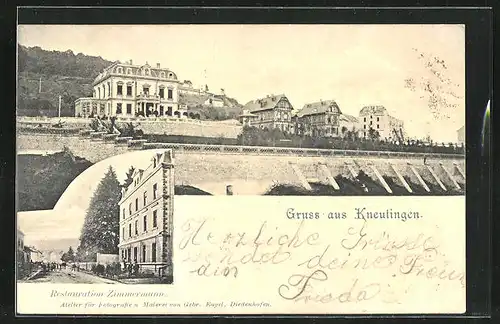 Gruss aus Kneutingen.
Herzliche Grüsse
sendet deine Freun
din
Frieda
Restauration Zimmermann.
Atelier für Fotografie u. Malerei von Gebr. Engel, Diedenhofen.